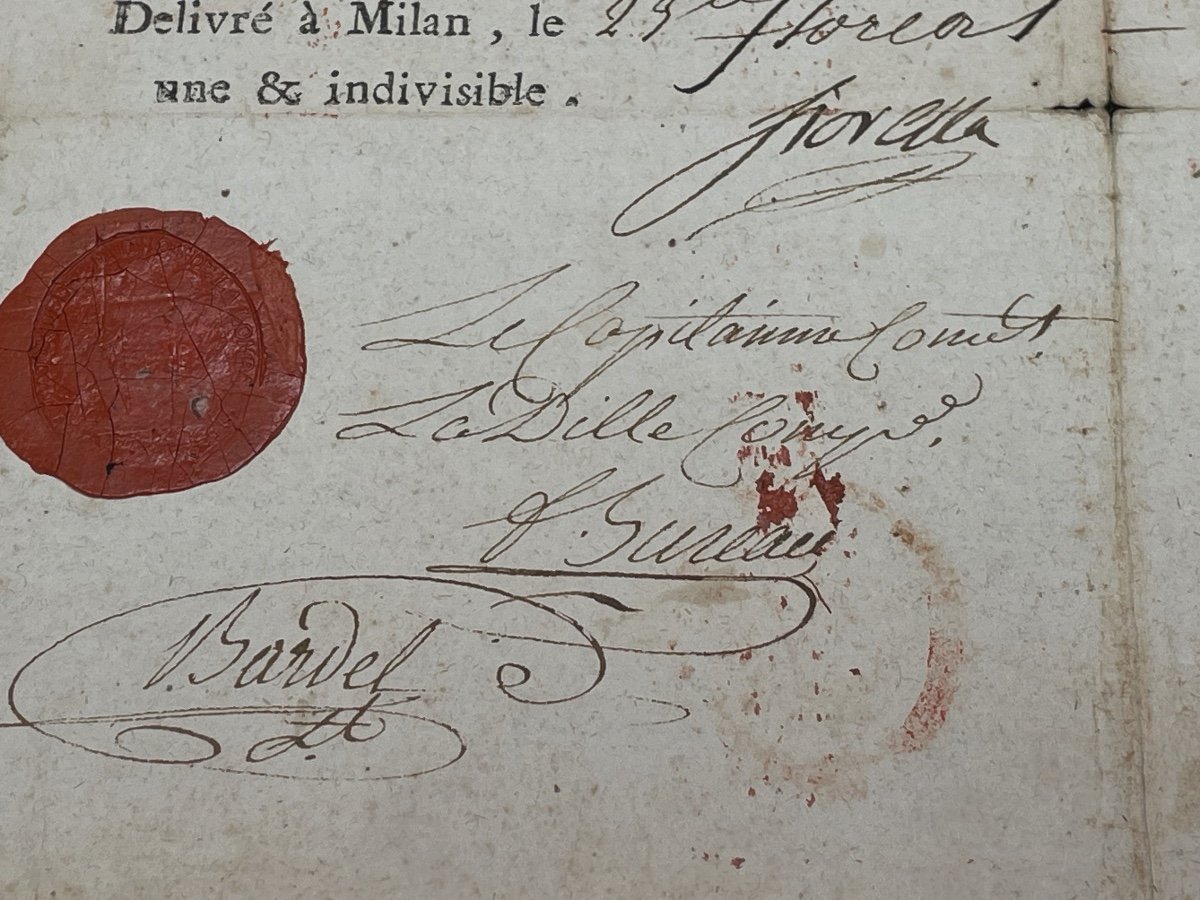 Delivré à Milan, le 23 floreal
une & indivisible.
fiorella
Le Capitainne Comdt.
La Ditte Comp.
Bureau
Bardel
Lt